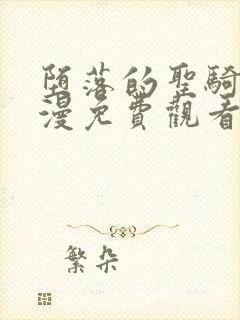 堕落的聖騎
漫免費觀看
繁朵